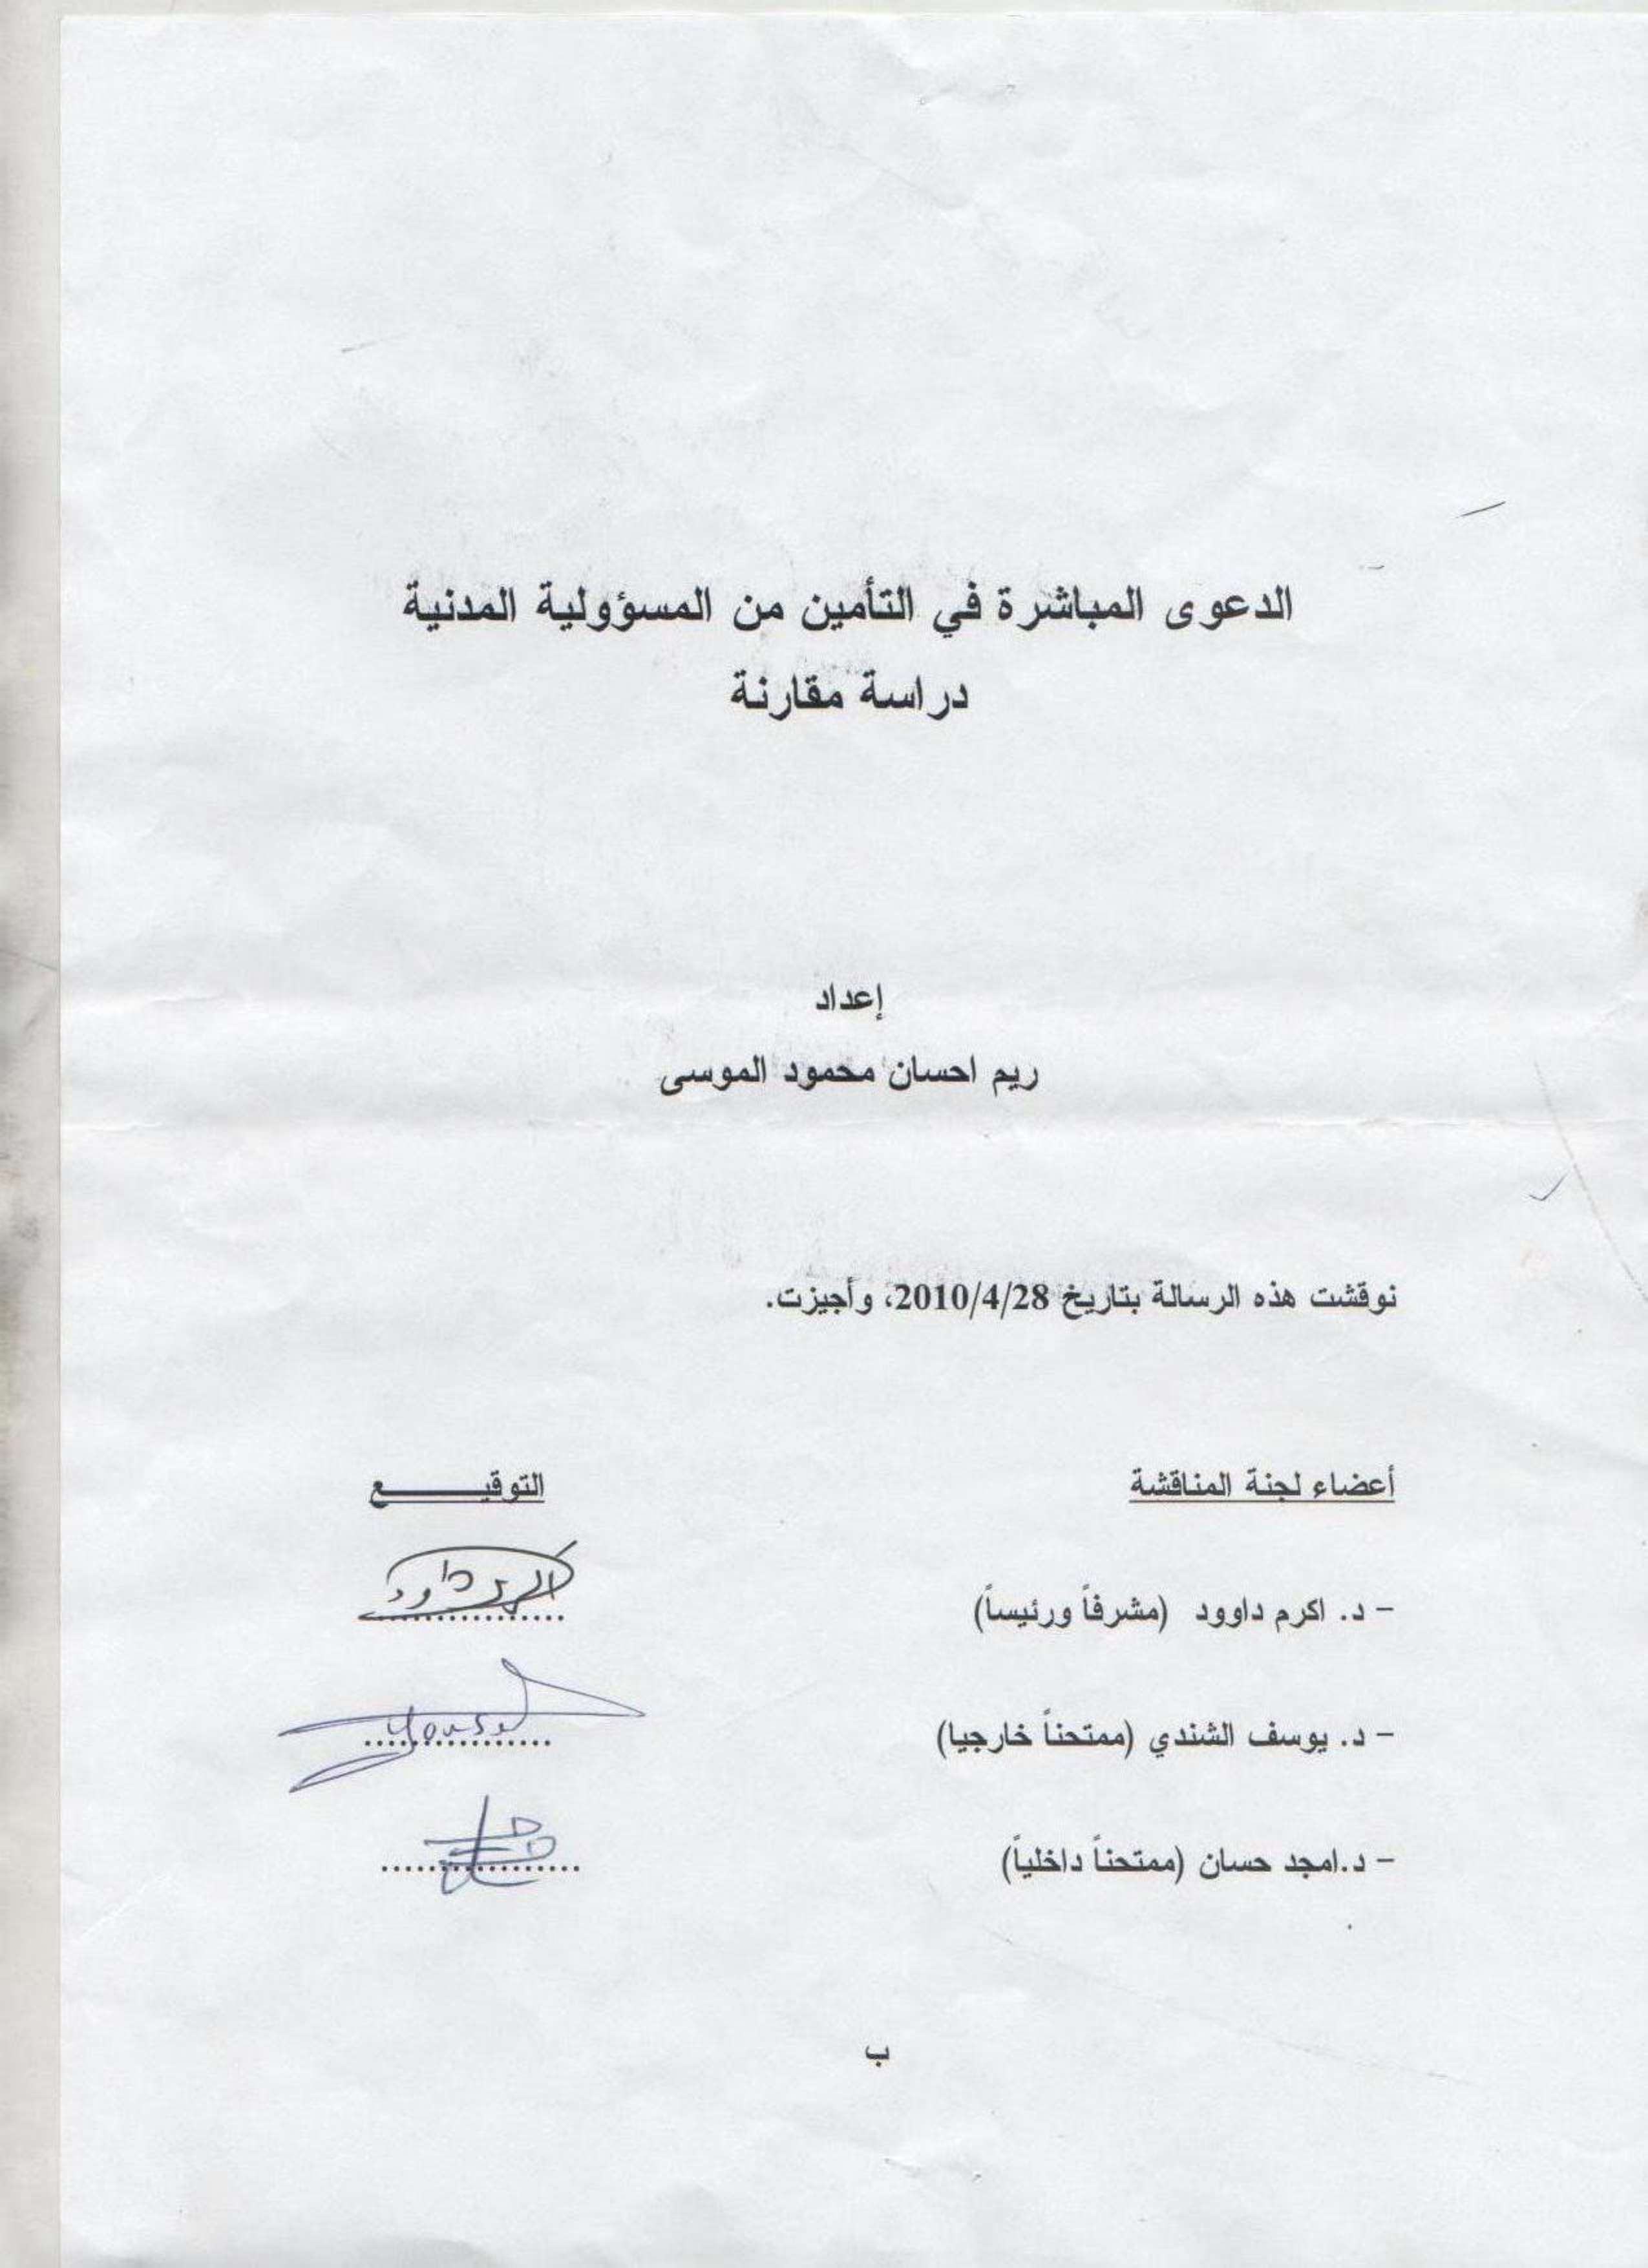 الدعوى المباشرة في التأمين من المسؤولية المدنية
دراسة مقارنة
إعداد
ريم احسان محمود الموسى
نوقشت هذه الرسالة بتاريخ 2010/4/28، وأجيزت.
أعضاء لجنة المناقشة التوقيـــــــع
- د. اكرم داوود (مشرفاً ورئيساً) ................ اكرم داود
- د. يوسف الشندي (ممتحناً خارجيا) ................ Yousef
- د.امجد حسان (ممتحناً داخلياً) ................
ب